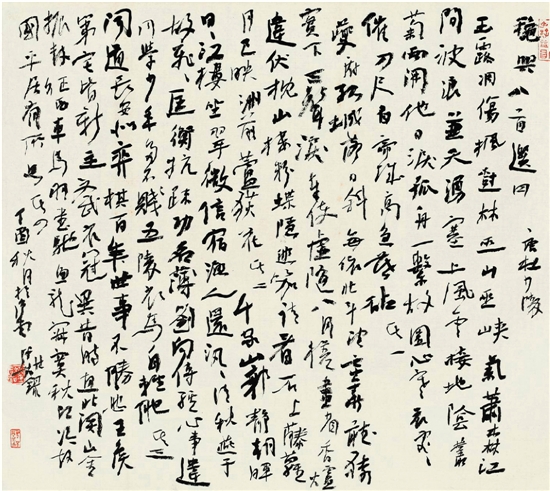 秋興八首選四 唐杜少陵
玉露凋傷楓樹林巫山巫峽氣蕭森江
間波浪兼天湧塞上風雲接地陰叢
菊兩開他日淚孤舟一繫故園心寒衣處、
催刀尺白帝城高急暮砧 其一
夔府孤城落日斜每依北斗望京華聽猿
實下三聲淚奉使虛隨八月槎畫省香爐
違伏枕山樓粉堞隱悲笳請看石上藤蘿
月已映洲前蘆荻花 其二 千家山郭靜朝暉
日、江樓坐翠微信宿漁人還汎、清秋燕子
故飛、匡衡抗疏功名薄劉向傳經心事違
同學少年多不賤五陵衣馬自輕肥 其三
聞道長安似弈棋百年世事不勝悲王侯
第宅皆新主文武衣冠異昔時直北關山金
鼓振征西車馬羽書馳魚龍寂寞秋江冷故
國平居有所思 其四
丁酉秋月